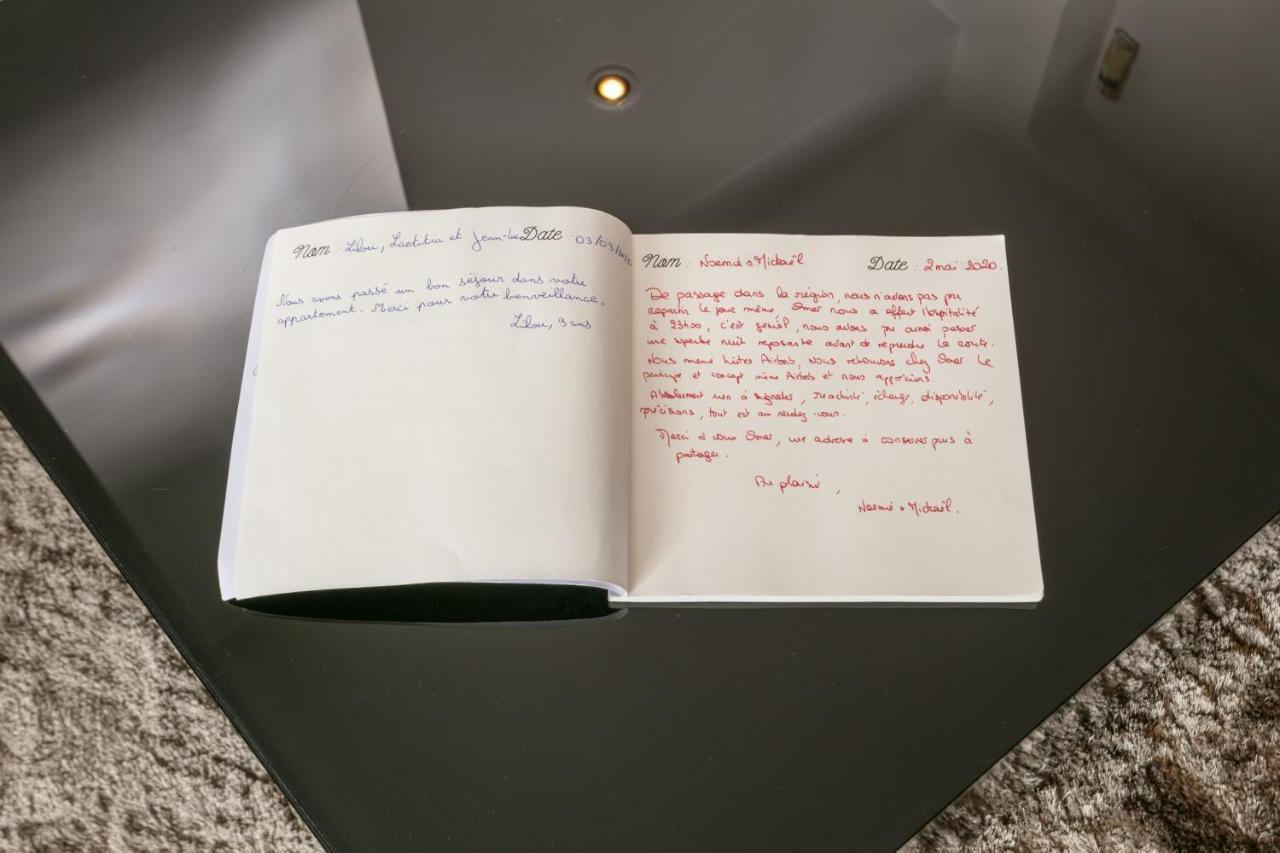 Nom : Lilou, Laetitia et Jean-Luc Date : 03/03/2020
Nous avons passé un bon séjour dans votre
appartement. Merci pour votre bienveillance.
Lilou, 9 ans
Nom : Noemie & Mickaël Date : 2 mai 2020.
De passage dans la région, nous n'avions pas pu
repartir le jour même. Omar nous a offert l'hospitalité
à 23h00, c'est genial, nous avons pu ainsi passer
une superbe nuit reposante avant de reprendre la route.
Nous même hôtes Airbnb, nous retrouvons chez Omar le
principe et concept même Airbnb et nous apprécions.
Absolument rien à signaler, réactivité, échange, disponibilité,
précisions, tout est au rendez-vous.
Merci à vous Omar, une adresse à conserver puis à
partager.
Au plaisir,
Noemie & Mickaël.